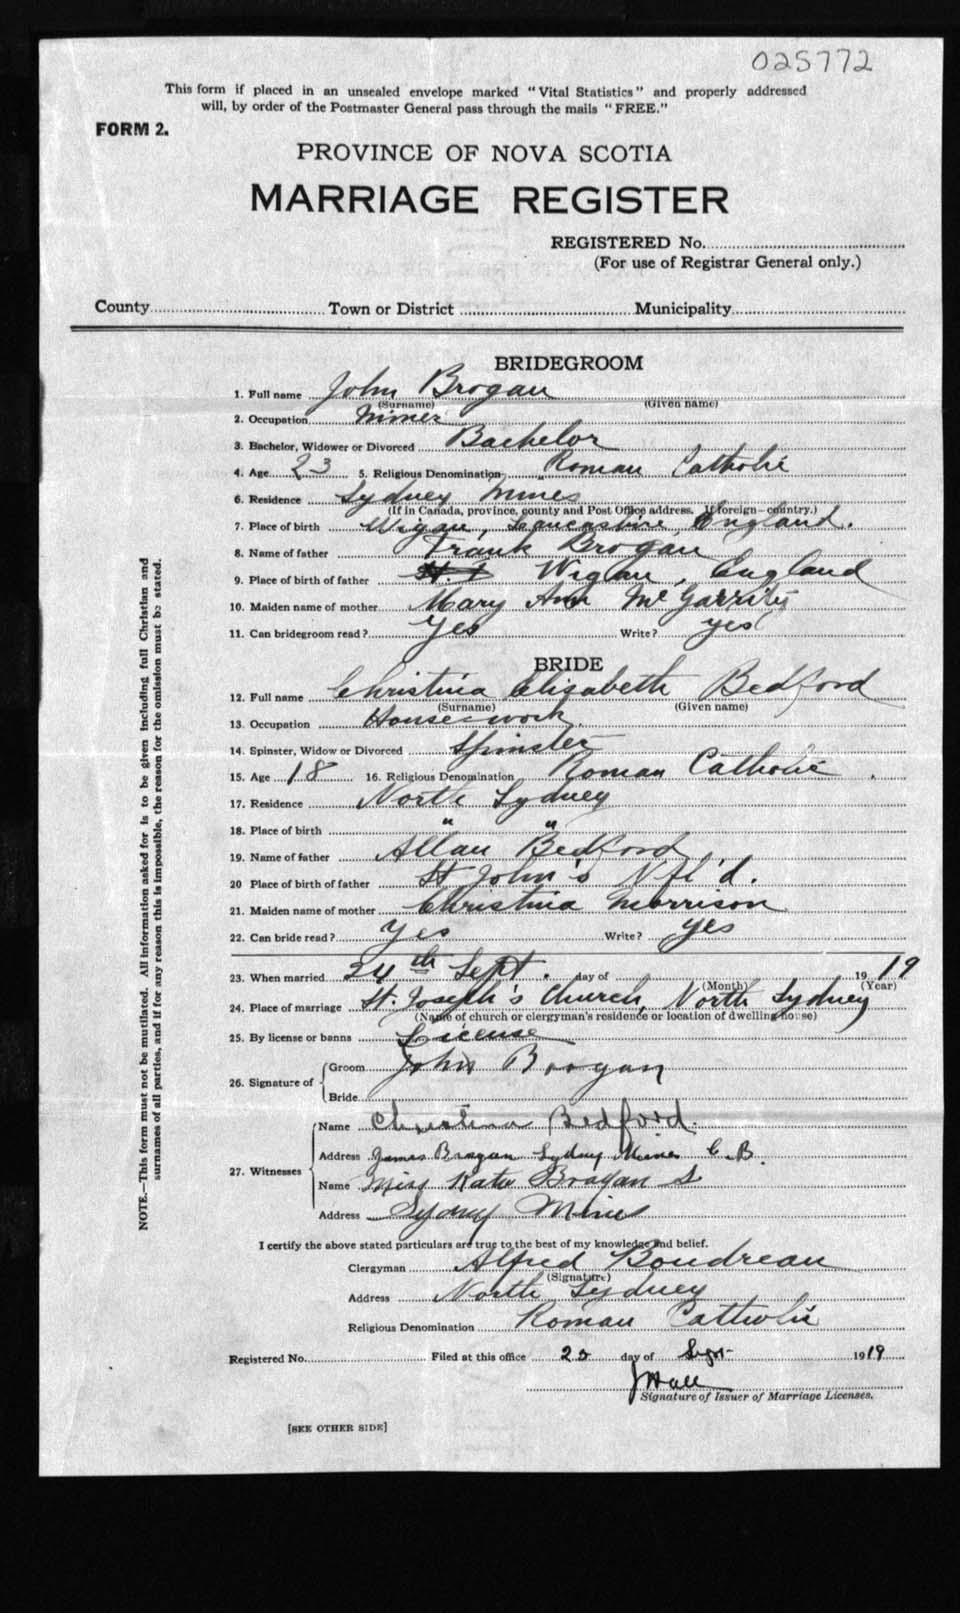 025772
This form if placed in an unsealed envelope marked "Vital Statistics" and properly addressed
will, by order of the Postmaster General pass through the mails "FREE."
FORM 2.
PROVINCE OF NOVA SCOTIA
MARRIAGE REGISTER
REGISTERED No.
(For use of Registrar General only.)
County Town or District Municipality
BRIDEGROOM
1. Full name John Brogan
(Surname) (Given name)
2. Occupation Miner
3. Bachelor, Widower or Divorced Bachelor
4. Age 23 5. Religious Denomination Roman Catholic
6. Residence Sydney Mines
(If in Canada, province, county and Post Office address. If foreign—country.)
7. Place of birth Wigan, Lancashire England.
8. Name of father Frank Brogan
9. Place of birth of father Wigan, England
10. Maiden name of mother Mary Ann McGarrity
11. Can bridegroom read? Yes Write? yes
BRIDE
12. Full name Christina Elizabeth Bedford
(Surname) (Given name)
13. Occupation Housework
14. Spinster, Widow or Divorced Spinster
15. Age 18 16. Religious Denomination Roman Catholic
17. Residence North Sydney
18. Place of birth " "
19. Name of father Allan Bedford
20 Place of birth of father St John's Nfl'd.
21. Maiden name of mother Christina Morrison
22. Can bride read? Yes Write? yes
23. When married 24th Sept. day of 1919
(Month) (Year)
24. Place of marriage St. Joseph's Church, North Sydney
(Name of church or clergyman's residence or location of dwelling house)
25. By license or banns License
26. Signature of Groom John Brogan
Bride
27. Witnesses Name Christina Bedford.
Address James Brogan Sydney Mines C.B.
Name Miss Katie Brogan
Address Sydney Mines
I certify the above stated particulars are true to the best of my knowledge and belief.
Clergyman Alfred Boudreau
(Signature)
Address North Sydney
Religious Denomination Roman Catholic
Registered No. Filed at this office day of Sept 1919
J Hall
Signature of Issuer of Marriage Licenses.
[SEE OTHER SIDE]
NOTE.—This form must not be mutilated. All information asked for is to be given including full Christian and
surnames of all parties, and if for any reason this is impossible, the reason for the omission must be stated.